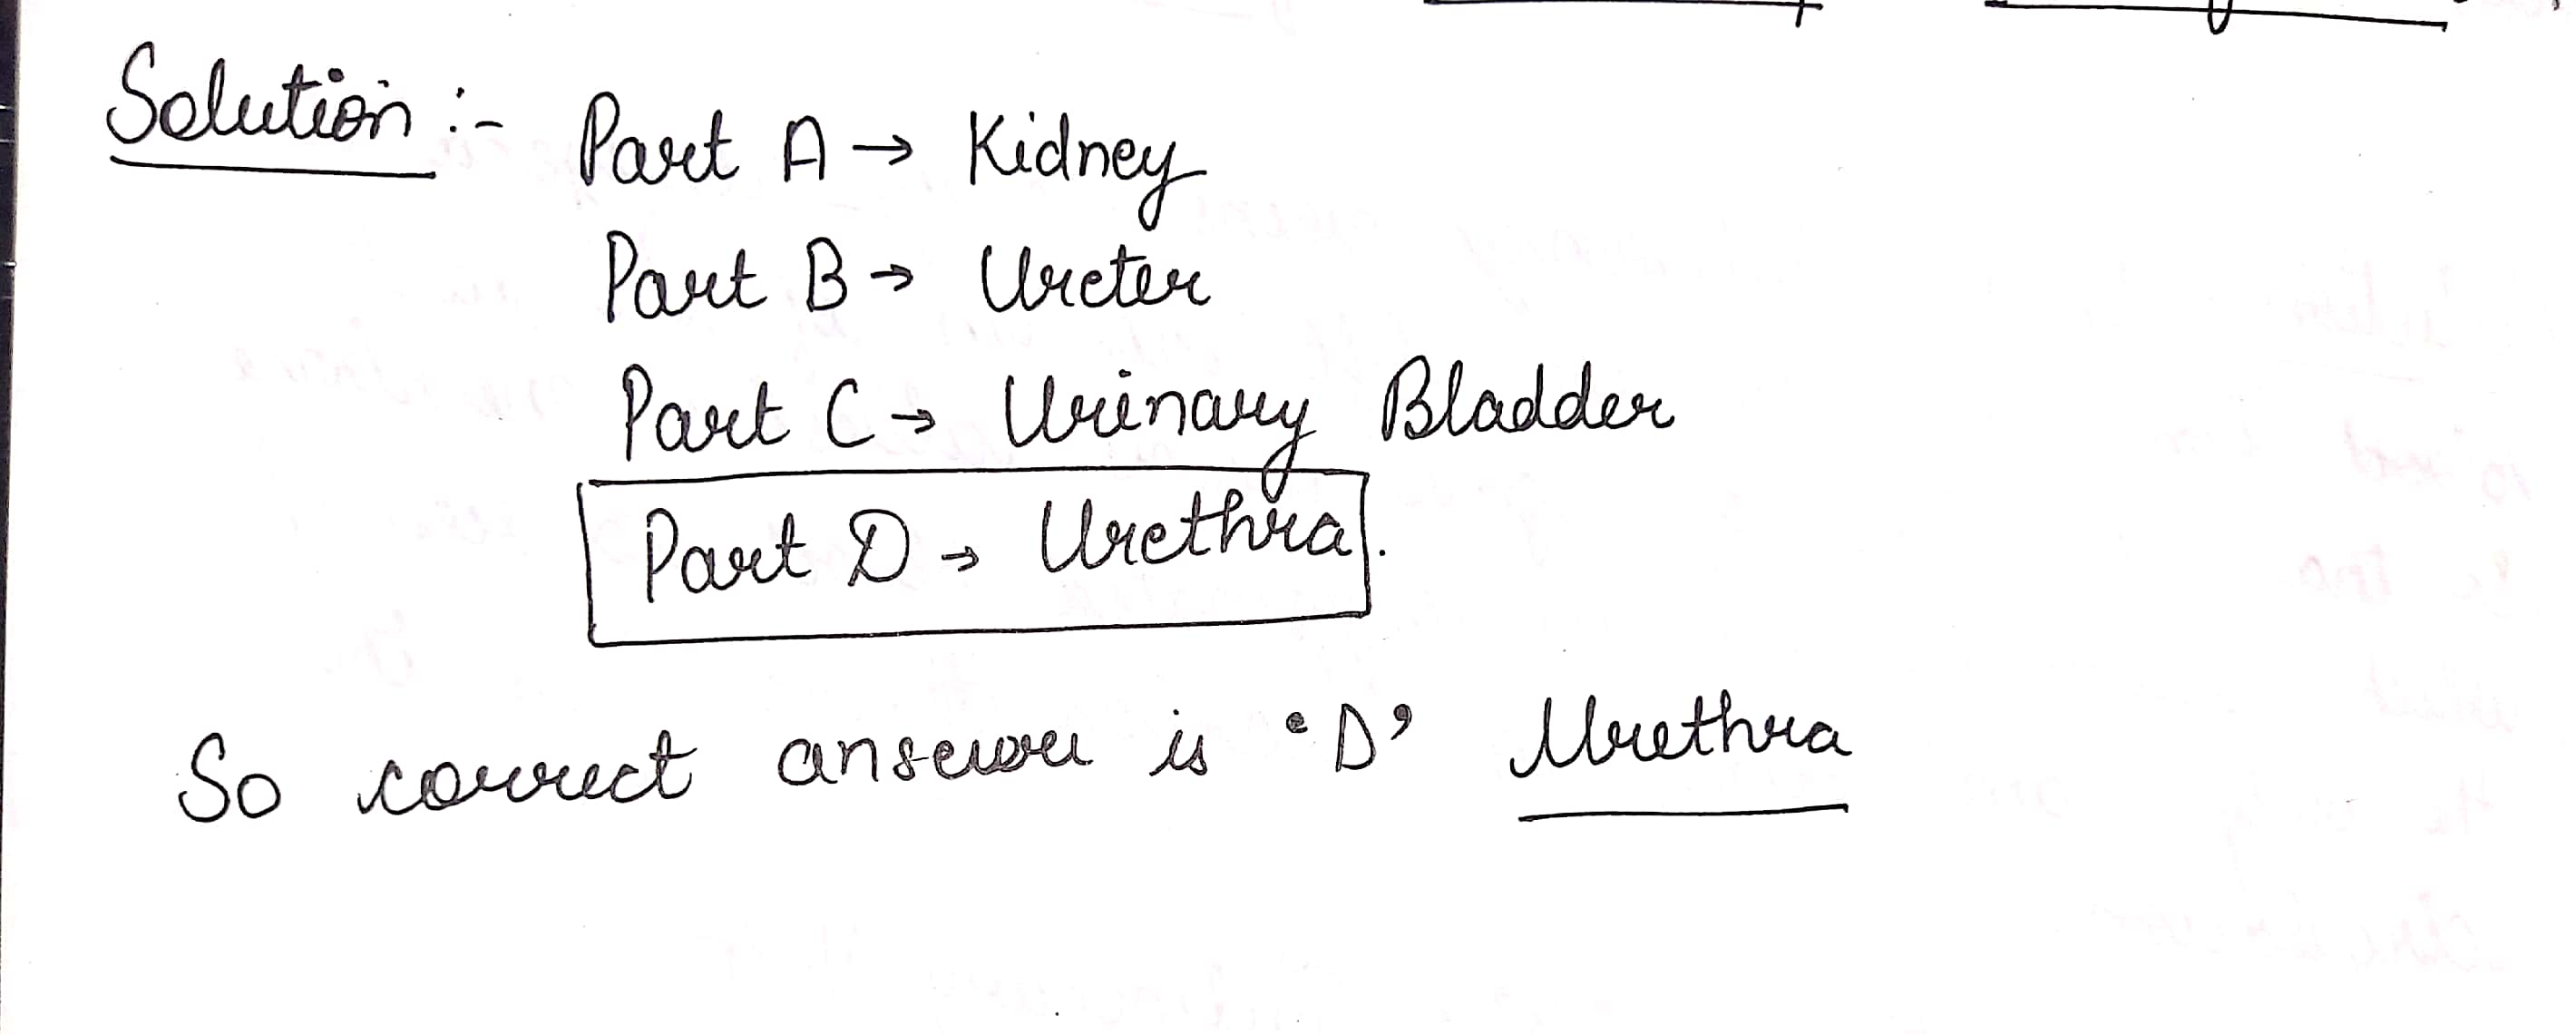 Solution :-
Part A → Kidney
Part B → Ureter
Part C → Urinary Bladder
Part D → Urethra.
So correct answer is 'D' Urethra